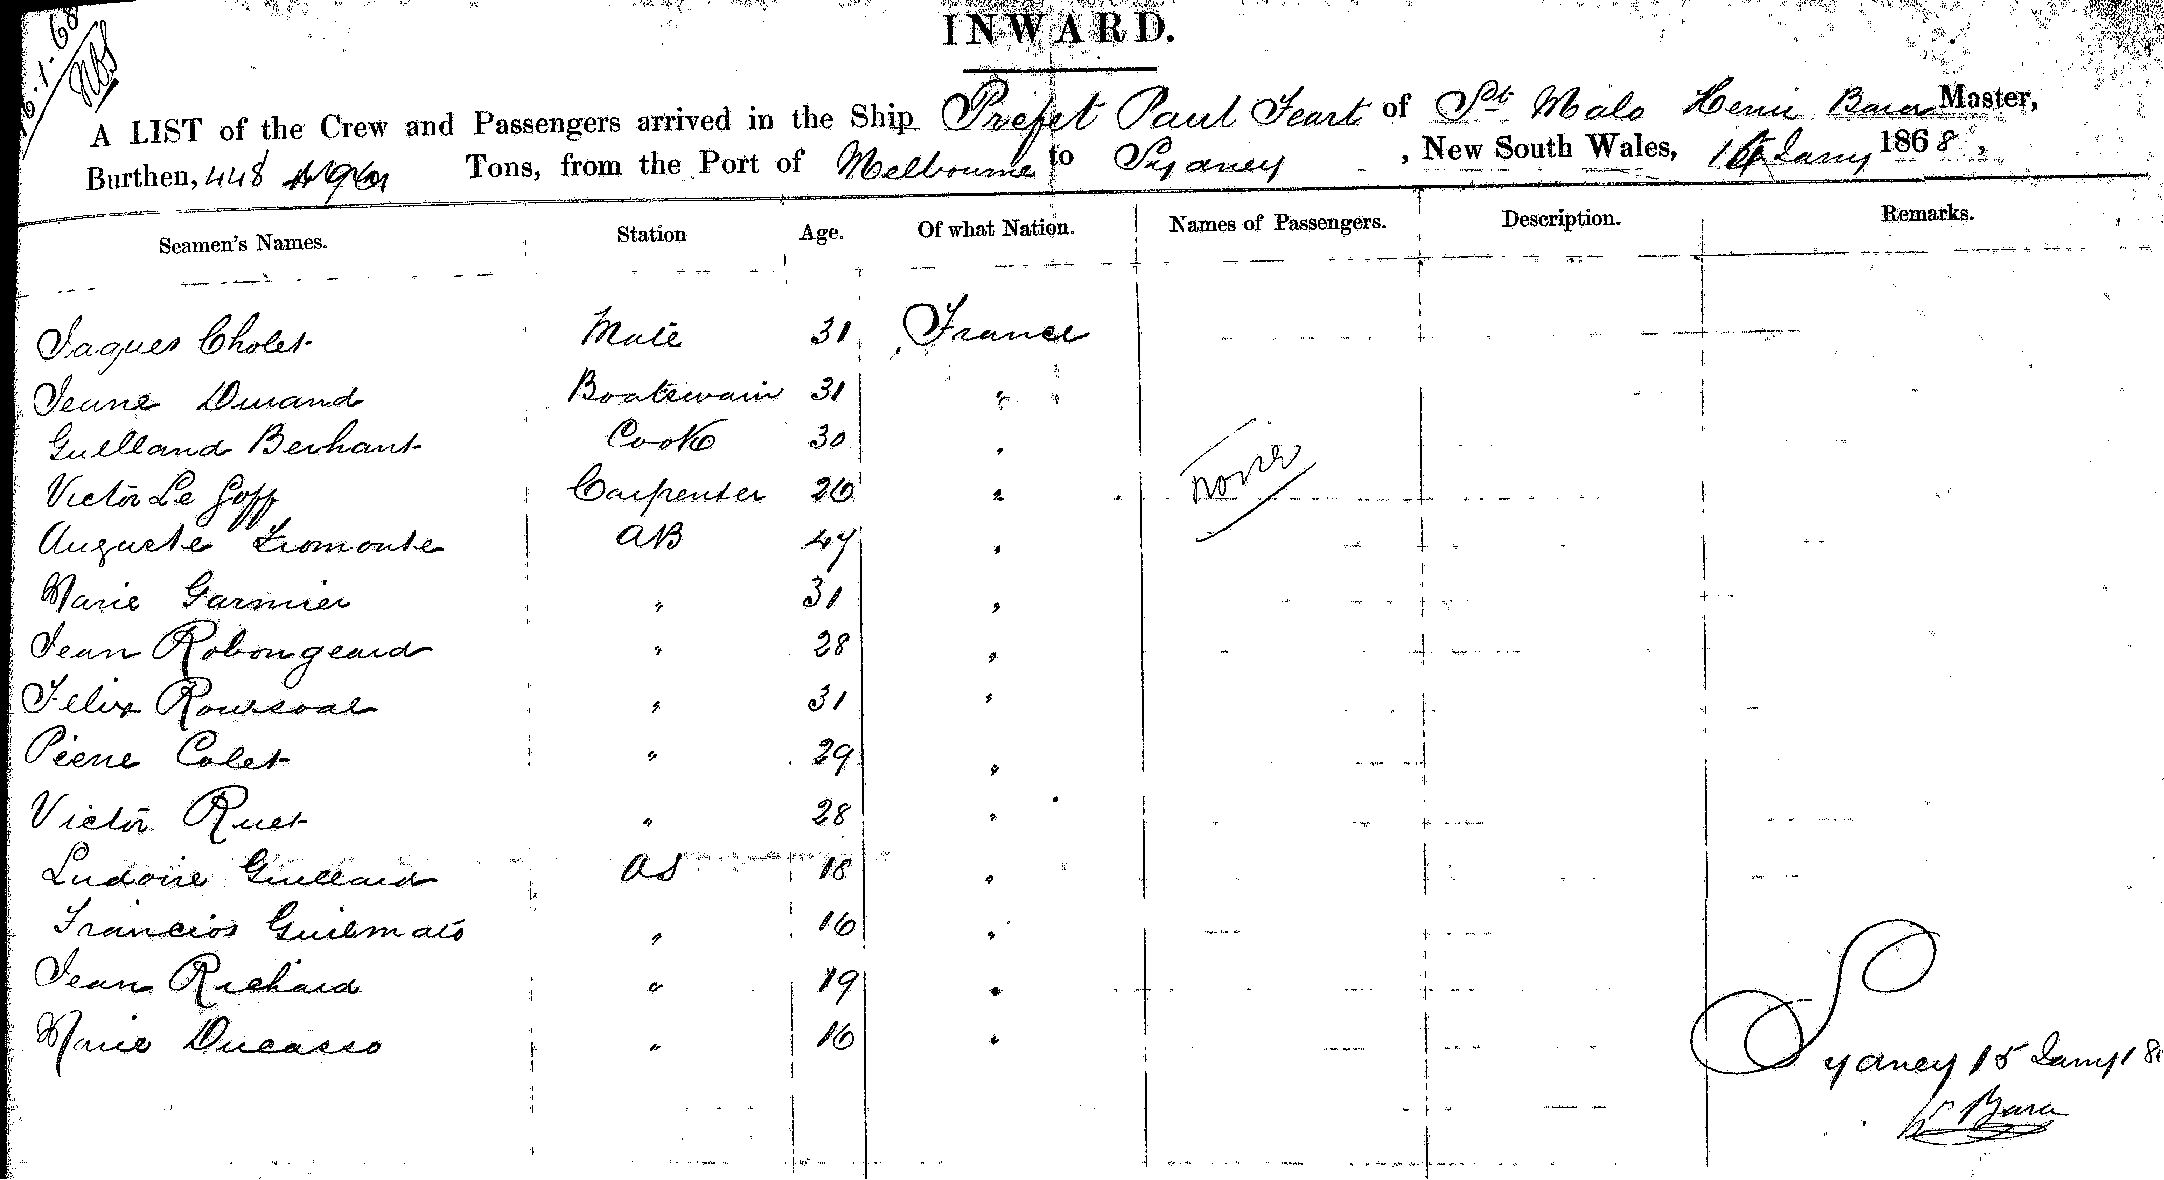 INWARD.
A LIST of the Crew and Passengers arrived in the Ship Prefet Paul Feart of St Malo Henri Master,
Burthen, 448 Tons, from the Port of Melbourne to Sydney, New South Wales, Jany 1868,
Seamen's Names. Station Age. Of what Nation. Names of Passengers. Description. Remarks.
Jaques Cholet Mate 31 France
Jeane Durand Boatswain 31 "
Guelland Berhant Cook 30 "
Victor Le Goff Carpenter 26 " none
Auguste Liomonte AB 47 "
Marie Garmier " 31 "
Jean Robongeard " 28 "
Felix Roursoal " 31 "
Pierre Colet " 29 "
Victor Ruet " 28 "
Ludovie Guellard OS 18 "
Francios Guilmato " 16 "
Jean Richard " 19 "
Marie Ducasso " 16 "
Sydney 15 Jany 18
Bara